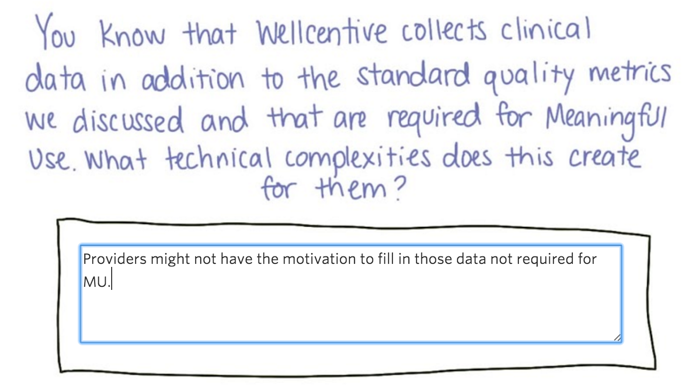 You Know that Wellcentive collects clinical
data in addition to the standard quality metrics
we discussed and that are required for Meaningful
Use. What technical complexities does this create
for them?
Providers might not have the motivation to fill in those data not required for
MU.